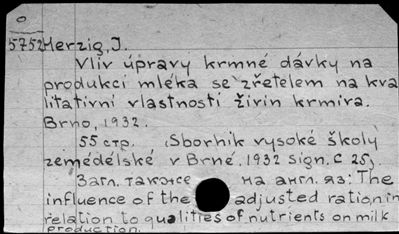 5752 Herzig, J.
Vliv úpravy krmné dávky na
produkci mléka se zřetelem na kva
litativní vlastnosti živin krmiva.
Brno, 1932.
55 стр. (Sborník vysoké školy
zemědělské v Brně. 1932 sign. C 25)
Загл. также на англ. яз: The
influence of the adjusted ration in
relation to qualities of nutrients on milk
production.